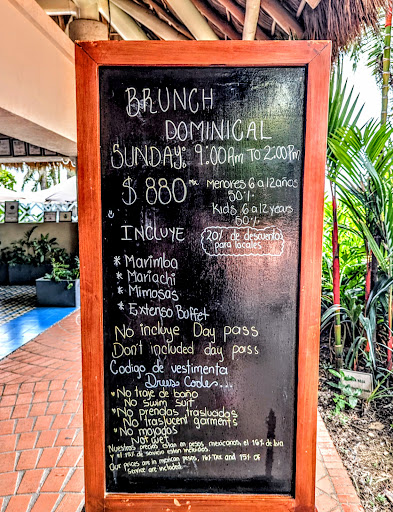 BRUNCH
DOMINICAL
SUNDAY: 9:00am TO 2:00pm
$ 880 Mx
Menores 6 a 12 años
50%
Kids 6 a 12 years
50%
INCLUYE
20% de descuento
para locales
* Marimba
* Mariachi
* Mimosas
* Extenso Buffet
No incluye Day pass
Don't included day pass
Codigo de vestimenta
Dress Codes...
* No traje de baño
No swim suit
* No prendas traslucidas
No traslucent garments
* No mojados
Not wet
Nuestros precios estan en pesos mexicanos, el 16% de iva
y el 15% de servicio estan incluidos.
Our prices are in mexican pesos, 16% TAX and 15% OF
service are included.